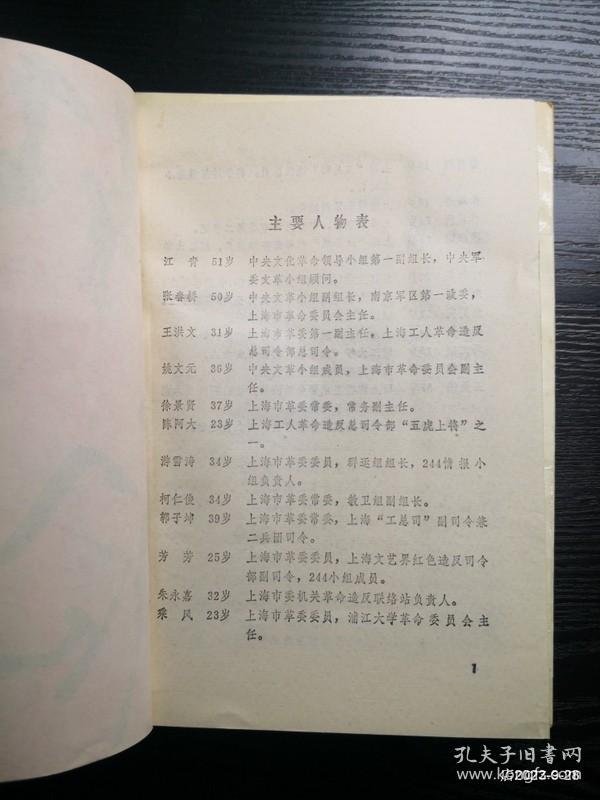 主要人物表
江青 51岁 中央文化革命领导小组第一副组长，中央军
委文革小组顾问。
张春桥 50岁 中央文革小组副组长，南京军区第一政委，
上海市革命委员会主任。
王洪文 31岁 上海市革委第一副主任，上海工人革命造反
总司令部总司令。
姚文元 36岁 中央文革小组成员，上海市革命委员会副主
任。
徐景贤 37岁 上海市革委常委，常务副主任。
陈阿大 23岁 上海工人革命造反总司令部“五虎上将”之
一。
游雪涛 34岁 上海市革委委员，群运组组长，244情报小
组负责人。
柯仁俊 34岁 上海市革委常委，敌卫组副组长。
郭子坤 39岁 上海市革委常委，上海“工总司”副司令兼
二兵团司令。
芳芳 25岁 上海市革委委员，上海文艺界红色造反司令
部副司令，244小组成员。
朱永嘉 32岁 上海市委机关革命造反联络站负责人。
乘风 23岁 上海市革委委员，浦江大学革命委员会主
任。
1
孔夫子旧书网
2023-9-28